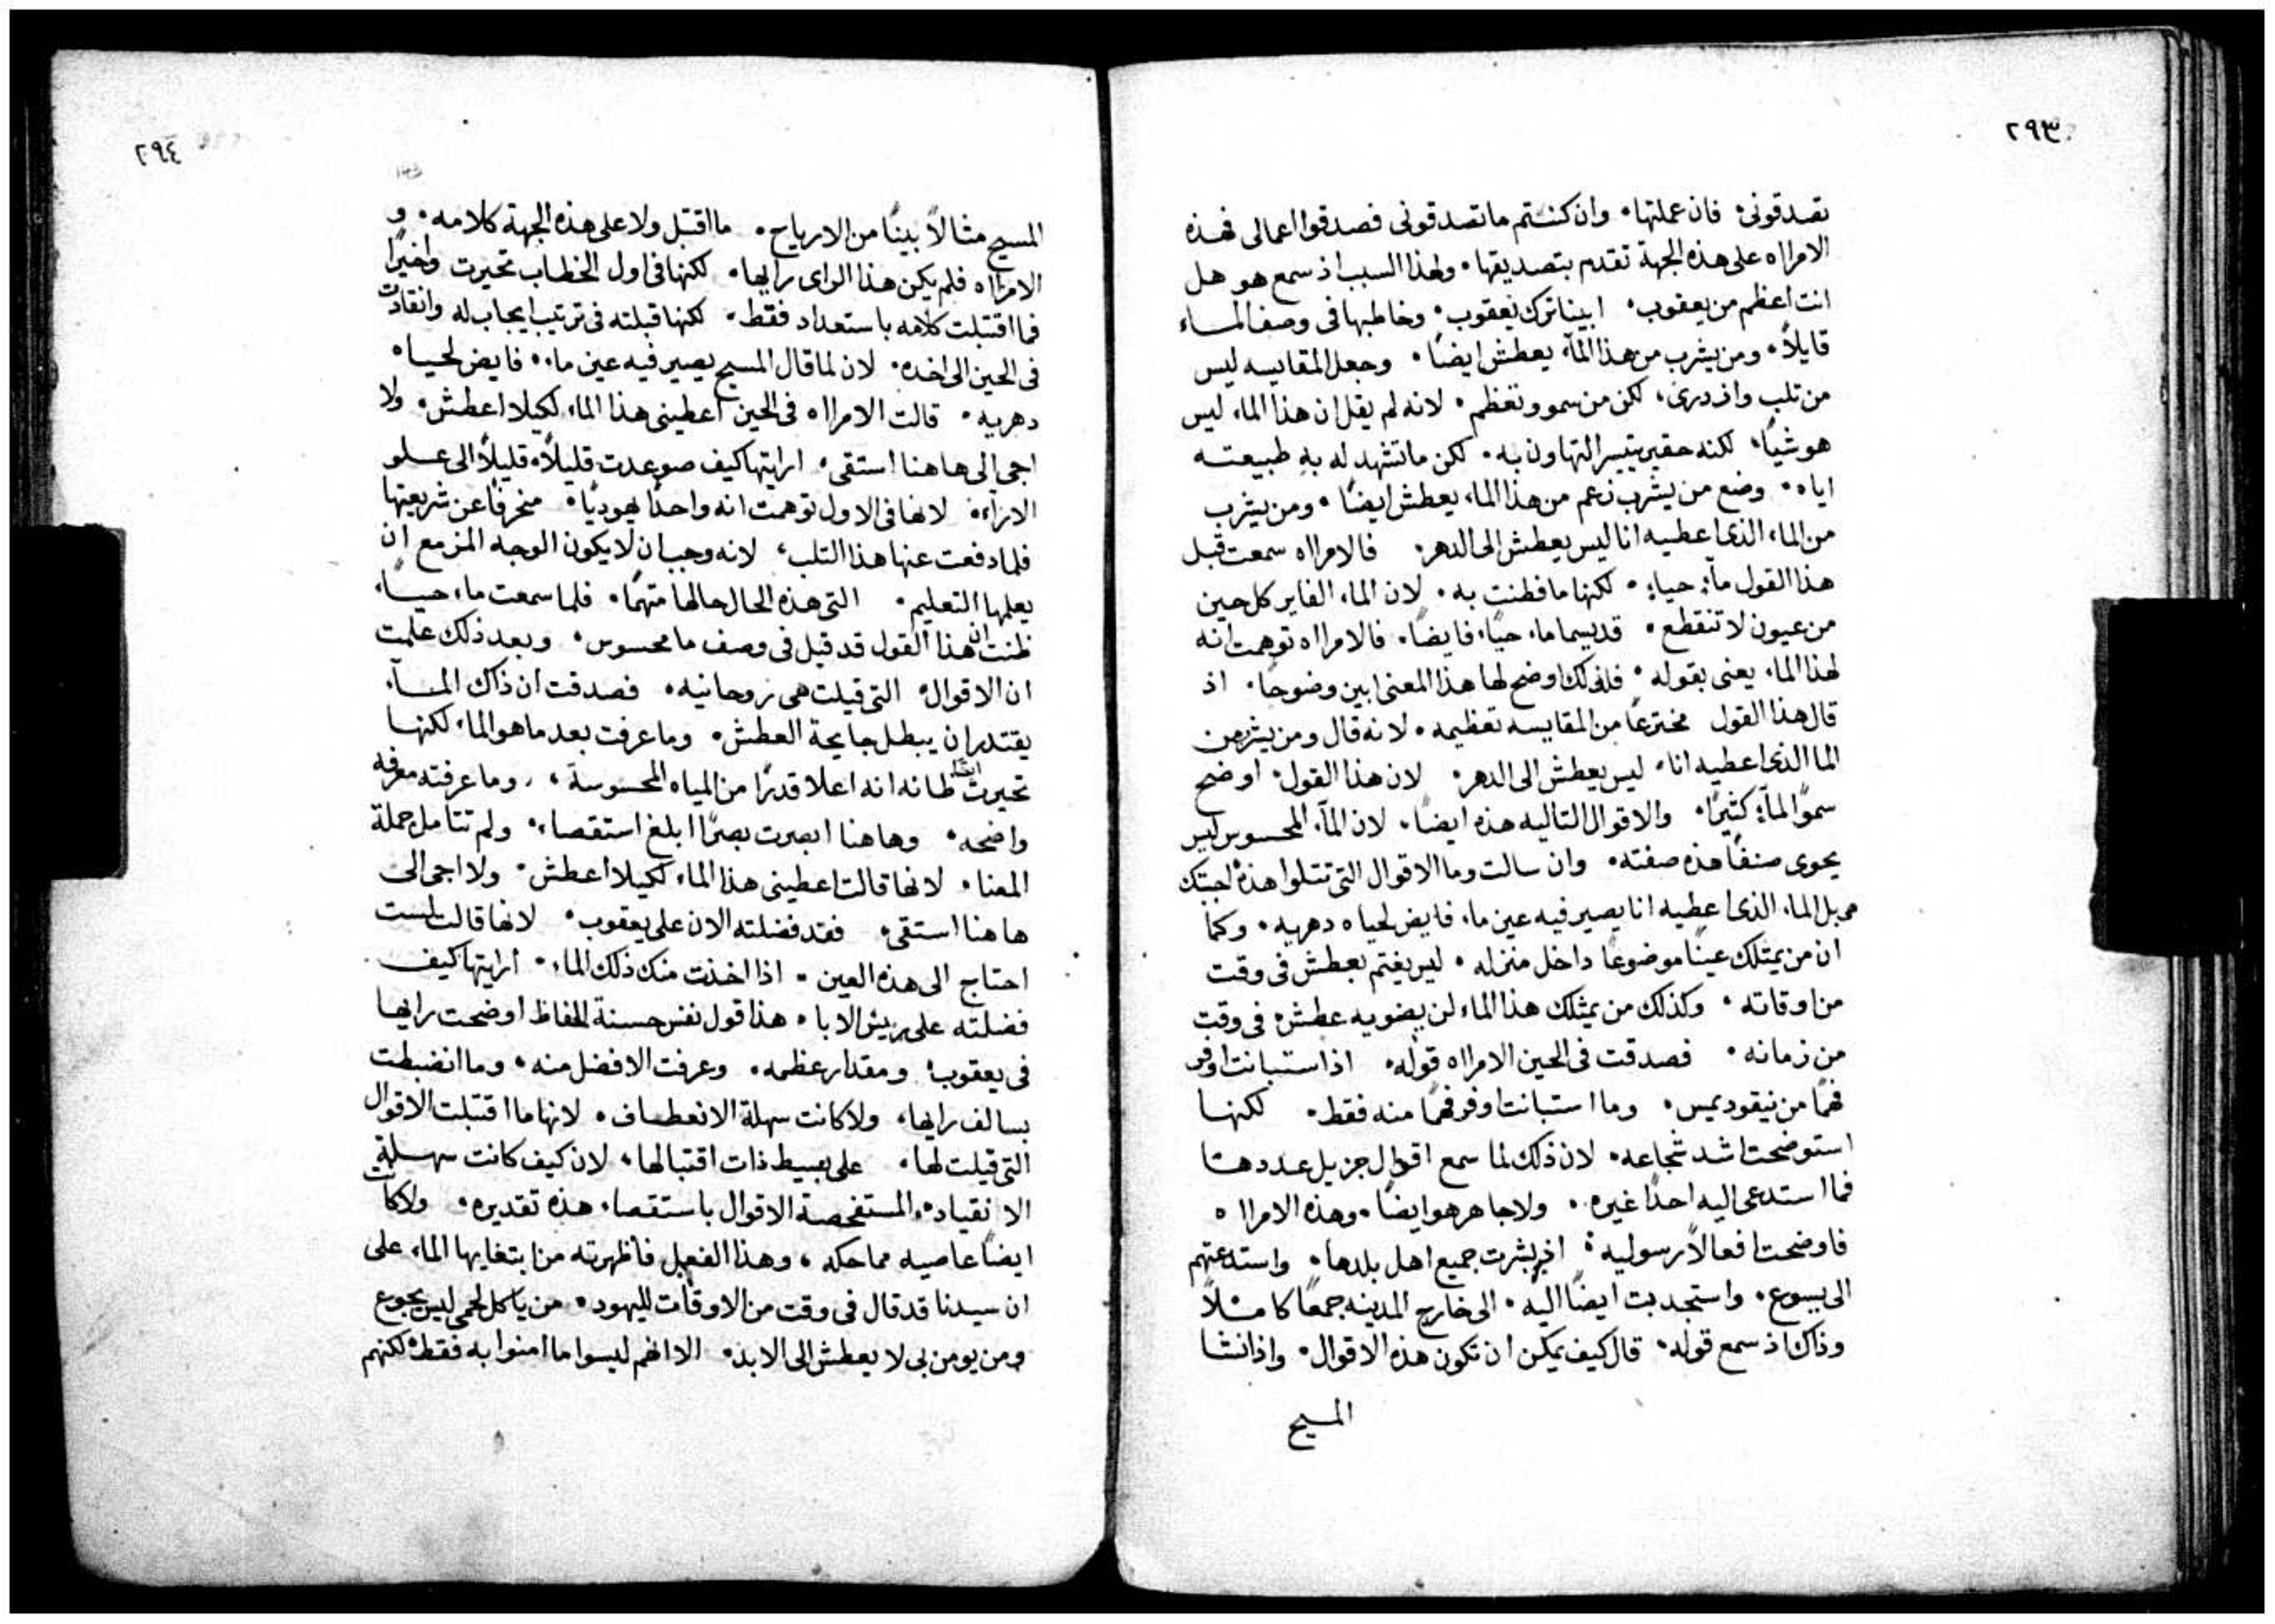 ٢٩٣
تصدقونى. فان عملتها. وان كنتم ما تصدقونى فصدقوا اعمالى فهذه
الامراه على هذه الجهة تقدم بتصديقها. ولهذا السبب اذ سمع هو هل
انت اعظم من يعقوب. ابينا ترك يعقوب. وخاطبها فى وصف الماء
قايلاً. ومن يشرب من هذا المآء يعطش ايضًا. وجعل المقايسه ليس
من تلب واذدرى، لكن من سمو وتعظم. لانه لم يقل ان هذا الماء ليس
هو شيًا، لكنه حقير يتيسر التهاون به. لكن ما تشهد له به طبيعته
اياه. وضع من يشرب زعم من هذا الماء يعطش ايضًا. ومن يشرب
من الماء الذى اعطيه انا ليس يعطش الى الدهر. فالامراه سمعت قبل
هذا القول مآء حيا. لكنها ما فطنت به. لان الماء الفاير كل حين
من عيون لا تنقطع. قد يسما ماء حيًا، فايضًا. فالامراه توهمت انه
لهذا الماء يعنى بقوله. فلذلك اوضح لها هذا المعنى ابين وضوحًا. اذ
قال هذا القول مخترعًا من المقايسه تعظيمه. لانه قال ومن يشرب من
الما الذى اعطيه انا، ليس يعطش الى الدهر. لان هذا القول اوضح
سموّ المآء كثيرًا. والاقوال التاليه هذه ايضًا. لان المآء المحسوس ليس
يحوى صنفًا هذه صفته. وان سالت وما الاقوال التى تتلوا هذه اجبتك
هى بل الماء الذى اعطيه انا يصير فيه عين ماء فايض لحياه دهريه. وكما
ان من يمتلك عينًا موضوعًا داخل منزله. ليس يغتم بعطش فى وقت
من اوقاته. وكذلك من يمتلك هذا الماء لن يضويه عطش فى وقت
من زمانه. فصدقت فى الحين الامراه قوله. اذ استبانت اوفر
فهمًا من نيقوديمس. وما استبانت اوفر فهمًا منه فقط. لكنها
استوضحت اشد شجاعه. لان ذلك لما سمع اقوال جزيل عددها
فما استدعى اليه احدًا غيره. ولا جاهر هو ايضًا. وهذه الامراه
فاوضحت افعالاً رسوليه. اذ بشرت جميع اهل بلدها. واستدعتهم
الى يسوع. واستجدبت ايضًا اليه. الى خارج المدينه جمعًا كاملاً
وذاك اذ سمع قوله. قال كيف يمكن ان تكون هذه الاقوال. واذ انشا
المسيح
٢٩٤
المسيح مثالاً بينًا من الارياح. ما اقتبل ولا على هذه الجهة كلامه. و
الامراه فلم يكن هذا الراى رايها. لكنها فى اول الخطاب تحيرت واخيرًا
فما اقتبلت كلامه باستعداد فقط. لكنها قبلته فى ترتيب ايجاب له وانقادت
فى الحين الى اخذه. لان لما قال المسيح يصير فيه عين ماء. فايض لحياه
دهريه. قالت الامراه فى الحين اعطينى هذا الماء لكيلا اعطش. ولا
اجى الى هاهنا استقى. ارايتها كيف صوعدت قليلاً قليلاً الى علو
الارآء. لانها فى الاول توهمت انه واحدًا يهوديًا. منحرفًا عن شريعتها
فلما دفعت عنها هذا التلب، لانه وجب ان لا يكون الوجه المزمع ان
يعلمها التعليم. التى هذه الحال حالها متهمًا. فلما سمعت ماء حيًا،
ظنت ان هذا القول قد قيل فى وصف ما محسوس. وبعد ذلك علمت
ان الاقوال التى قيلت هى روحانيه. فصدقت ان ذاك المآء
يقتدر ان يبطل جايحة العطش. وما عرفت بعد ما هو الماء، لكنها
تحيرت ايضًا ظانه انه اعلا قدرًا من المياه المحسوسة. وما عرفته معرفه
واضحه. وهاهنا ابصرت بصرًا ابلغ استقصاء. ولم تتامل جملة
المعنا. لانها قالت اعطينى هذا الماء لكيلا اعطش. ولا اجى الى
هاهنا استقى. فقد فضلته الان على يعقوب. لانها قالت لست
احتاج الى هذه العين. اذا اخذت منك ذلك الماء. ارايتها كيف
فضلته على ريش الابا. هذا قول نفس حسنة الحفاظ اوضحت رايها
فى يعقوب. ومقدار عظمه. وعرفت الافضل منه. وما انضبطت
بسالف رايها، ولا كانت سهلة الانعطاف. لانها ما اقتبلت الاقوال
التى قيلت لها. على بسيط ذات اقتبالها، لان كيف كانت سهلة
الانقياد، المستفحصة الاقوال باستقصاء هذه تقديره. ولا كانت
ايضًا عاصيه مماحكه، وهذا الفعل فاظهرته من ابتغايها الماء على
ان سيدنا قد قال فى وقت من الاوقات لليهود. من ياكل لحمى ليس يجوع
ومن يومن بى لا يعطش الى الابد. الا انهم ليسوا ما امنوا به فقط لكنهم